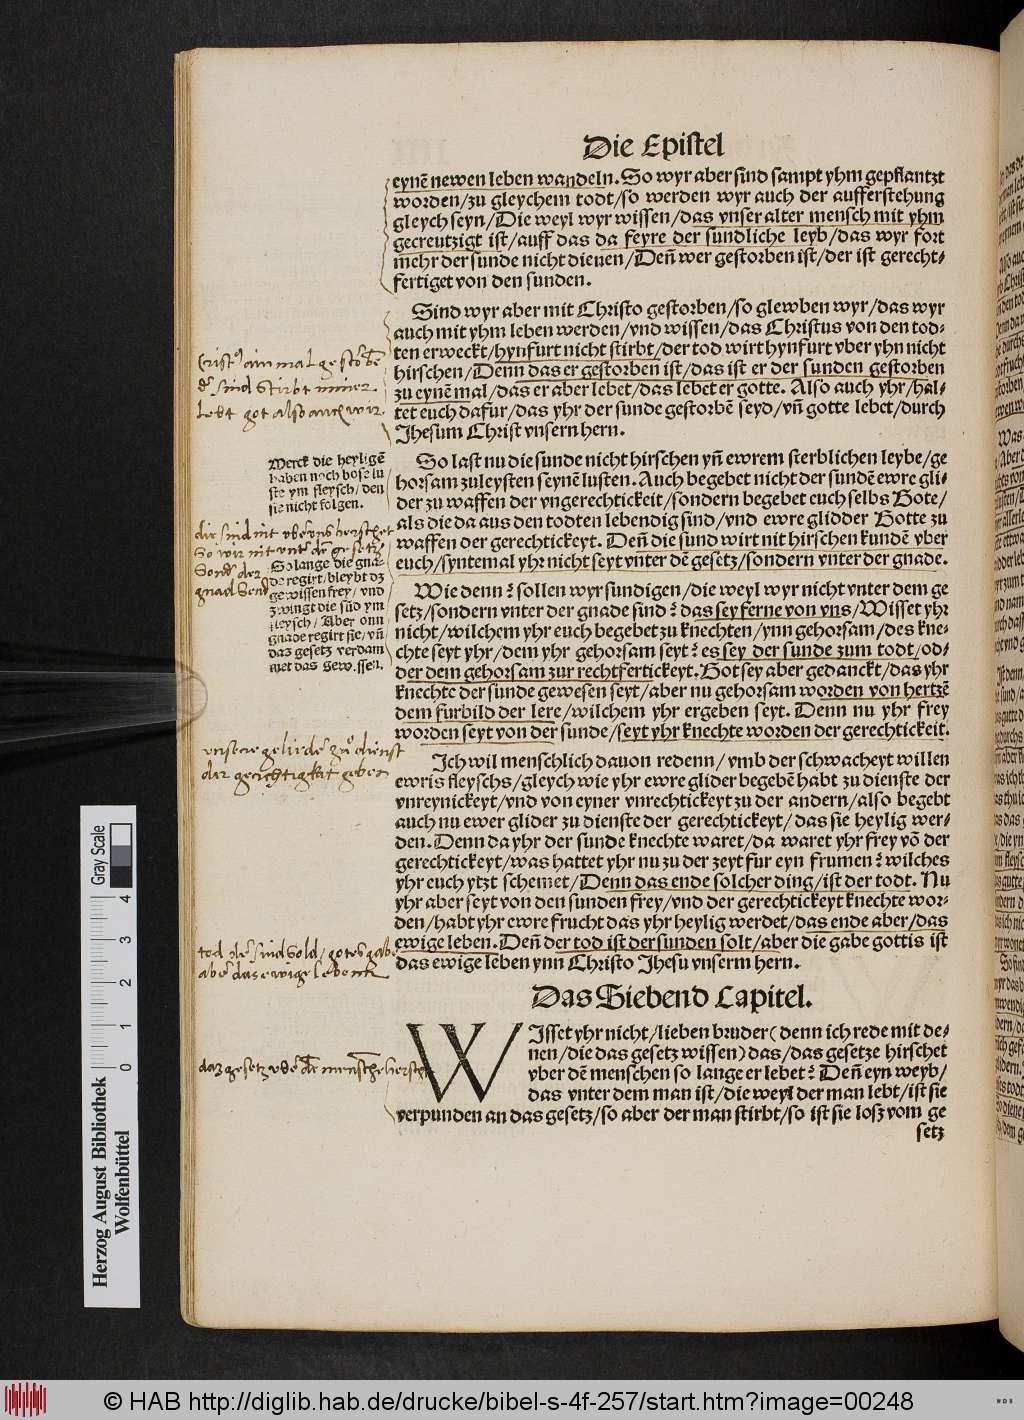 Die Epistel
eynē newen leben wandeln. So wyr aber sind sampt yhm gepflantzt
worden/zu gleychem todt/so werden wyr auch der aufferstehung
gleych seyn/Die weyl wyr wissen/das vnser alter mensch mit yhm
gecreutzigt ist/auff das da feyre der sundliche leyb/das wyr fort
mehr der sunde nicht dienen/Deñ wer gestorben ist/der ist gerecht-
fertiget von den sunden.
Sind wyr aber mit Christo gestorben/so glewben wyr/das wyr
auch mit yhm leben werden/vnd wissen/das Christus von den tod-
ten erweckt/hynfurt nicht stirbt/der tod wirt hynfurt vber yhn nicht
hirschen/Denn das er gestorben ist/das ist er der sunden gestorben
zu eynē mal/das er aber lebet/das lebet er gotte. Also auch yhr/hal-
tet euch dafur/das yhr der sunde gestorbē seyd/vñ gotte lebet/durch
Jhesum Christ vnsern hern.
ainmal
sind stirbt nimer
lebt got also auch wir
So last nu die sunde nicht hirschen yñ ewrem sterblichen leybe/ge
horsam zuleysten seynē lusten. Auch begebet nicht der sundē ewre gli-
der zu waffen der vngerechtickeit/sondern begebet euch selbs Gote/
als die da aus den todten lebendig sind/vnd ewre glidder Gotte zu
waffen der gerechtickeyt. Deñ die sund wirt nit hirschen kundē vber
euch/syntemal yhr nicht seyt vnter dē gesetz/sondern vnter der gnade.
Merck die heyligē
haben noch bose lu
ste ym fleysch/den
sie nicht folgen.
So lange die gna
de regirt/bleybt dz
gewissen frey/vnd
zwingt die sūd ym
fleysch/Aber onn
gnade regirt sie/vñ
das gesetz verdam
met das gewissen.
Wie denn? sollen wyr sundigen/die weyl wyr nicht vnter dem ge
setz/sondern vnter der gnade sind? das sey ferne von vns/Wisset yhr
nicht/wilchem yhr euch begebet zu knechten/ynn gehorsam/des kne-
chte seyt yhr/dem yhr gehorsam seyt? es sey der sunde zum todt/od-
der dem gehorsam zur rechtfertickeyt. Got sey aber gedanckt/das yhr
knechte der sunde gewesen seyt/aber nu gehorsam worden von hertzē
dem furbild der lere/wilchem yhr ergeben seyt. Denn nu yhr frey
worden seyt von der sunde/seyt yhr knechte worden der gerechtickeit.
der gerichtigkait geben
Jch wil menschlich dauon redenn/vmb der schwacheyt willen
ewris fleyschs/gleych wie yhr ewre glider begebē habt zu dienste der
vnreynickeyt/vnd von eyner vnrechtickeyt zu der andern/also begebt
auch nu ewer glider zu dienste der gerechtickeyt/das sie heylig wer-
den. Denn da yhr der sunde knechte waret/da waret yhr frey vō der
gerechtickeyt/was hattet yhr nu zu der zeyt fur eyn frumen? wilches
yhr euch ytzt schemet/Denn das ende solcher ding/ist der todt. Nu
yhr aber seyt von den sunden frey/vnd der gerechtickeyt knechte wor-
den/habt yhr ewre frucht das yhr heylig werdet/das ende aber/das
ewige leben. Deñ der tod ist der sunden solt/aber die gabe gottis ist
das ewige leben ynn Christo Jhesu vnserm hern.
Das Siebend Capitel.
WIsset yhr nicht/lieben bruder(denn ich rede mit de-
nen/die das gesetz wissen)das/das gesetze hirschet
vber dē menschen so lange er lebet? Deñ eyn weyb/
das vnter dem man ist/die weyl der man lebt/ist sie
verpunden an das gesetz/so aber der man stirbt/so ist sie losz vom ge
setz
Gray Scale
0 1 2 3 4
Herzog August Bibliothek
Wolfenbüttel
© HAB http://diglib.hab.de/drucke/bibel-s-4f-257/start.htm?image=00248